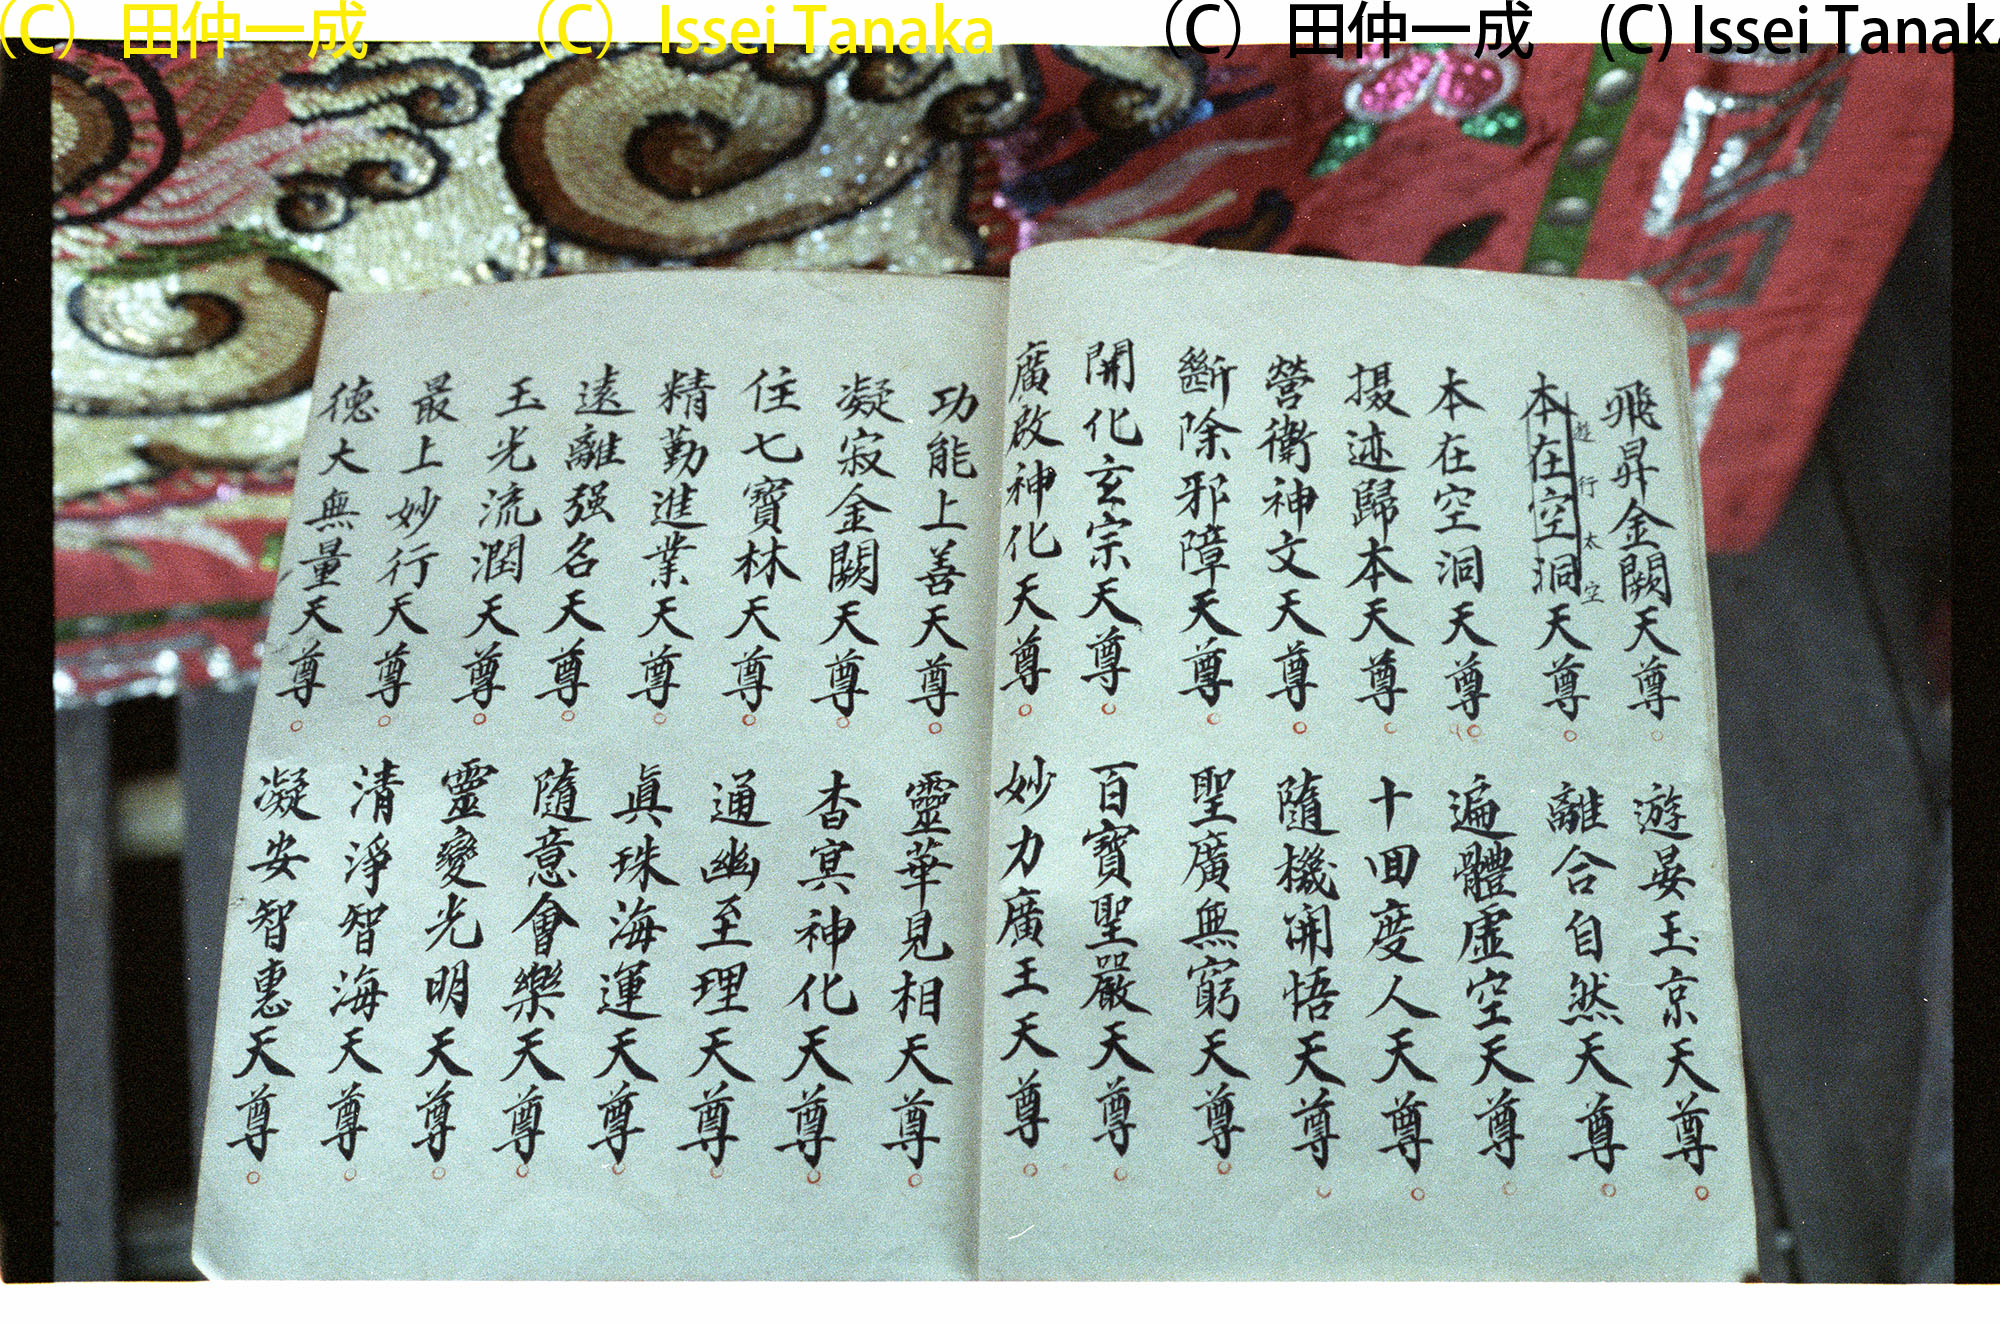 (C) 田仲一成 (C) Issei Tanaka (C) 田仲一成 (C) Issei Tanaka
飛昇金闕天尊 遊晏玉京天尊
本在空洞天尊 離合自然天尊
遊行太空
本在空洞天尊 遍體虛空天尊
摄迹歸本天尊 十回度人天尊
營衛神文天尊 隨機開悟天尊
斷除邪障天尊 聖廣無窮天尊
開化玄宗天尊 百寶聖嚴天尊
廣啟神化天尊 妙力廣王天尊
功能上善天尊 靈華見相天尊
凝寂金闕天尊 杳冥神化天尊
住七寶林天尊 通幽至理天尊
精勤進業天尊 真珠海運天尊
遠離强名天尊 隨意會樂天尊
玉光流潤天尊 靈變光明天尊
最上妙行天尊 清淨智海天尊
德大無量天尊 凝安智惠天尊